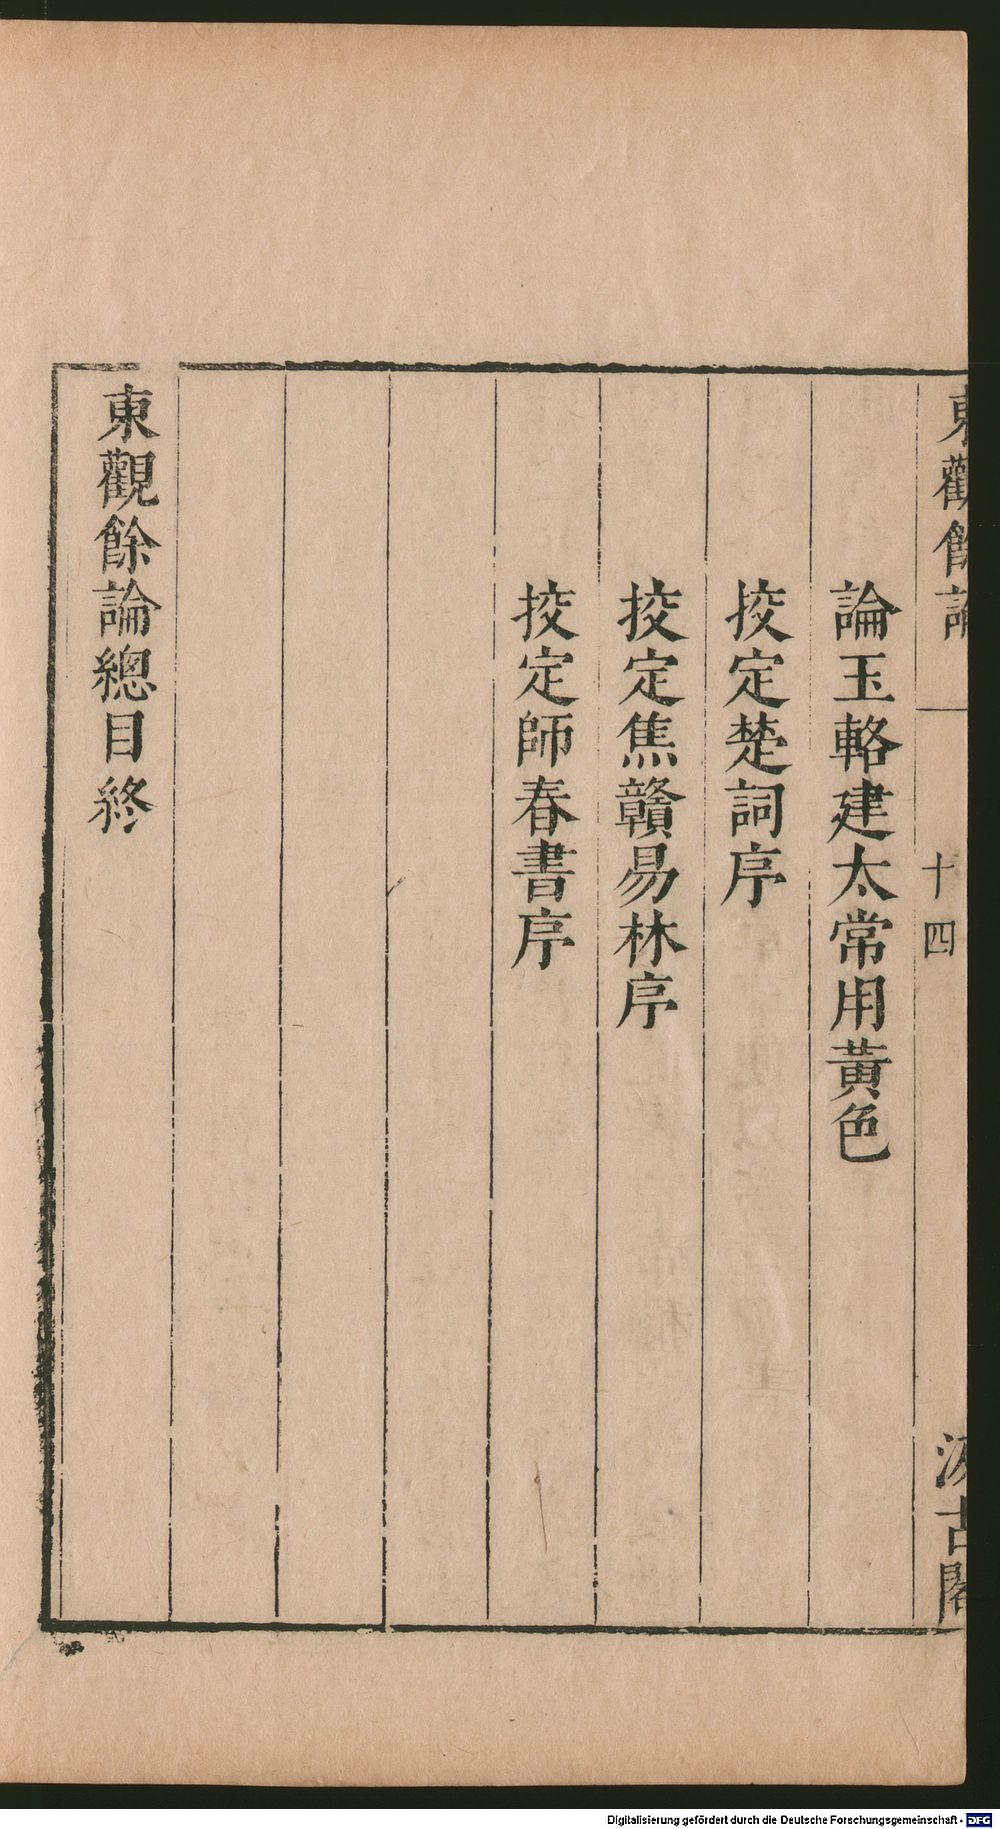 東觀餘論
十四
汲古閣
論玉輅建太常用黃色
挍定楚詞序
挍定焦贛易林序
挍定師春書序
東觀餘論總目終
Digitalisierung gefördert durch die Deutsche Forschungsgemeinschaft - DFG